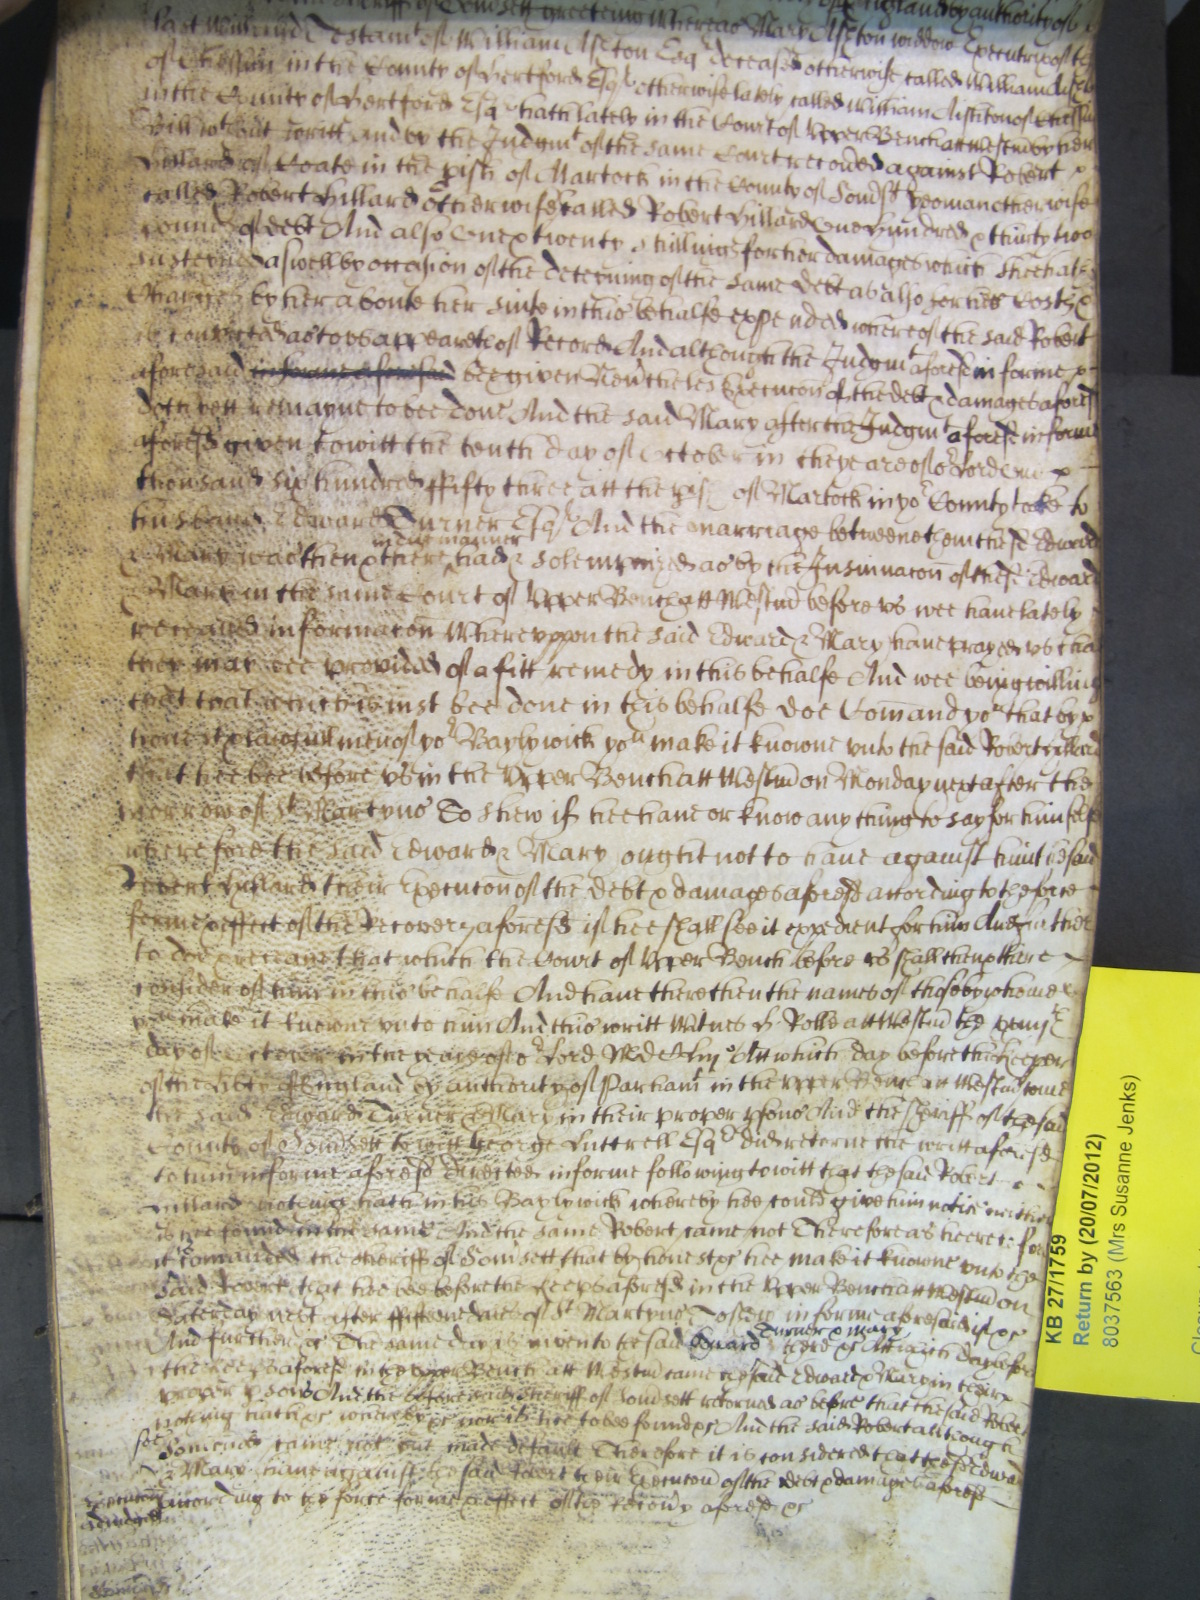 Sheriff of Somsett greeteing Whereas Mary Ashton widdow Executrix of the
last will and Testamt of William Ashton Esqr deceased otherwise called William
of in the County of Hertford Esqr otherwise lately called William of
in the County of Hertford Esqr hath lately in the Court of Upper Bench att Westm by her
Bill wthout writt and by the Judgmt of the same Court recovered against Robert
Hillard of Coate in the pish of Martock in the County of Somst yeoman otherwise
called Robert Hillard otherwise called Robert Hillard One hundred & thirty two
pounds of debt And also One & twenty shillings for her damages which shee hath
susteyned aswell by occasion of the deteyning of the same debt as also for her Costs &
Charges by her aboute her suite in this behalfe expended whereof the said Robert
is convicted as to us appeareth of Record And although the Judgmt aforesd in forme
aforesaid in forme aforesaid bee given Nevtheles Execucon of the debt & damages aforesd
doth yett remayne to bee done And the said Mary after the Judgmt aforesd in forme
aforesd given to witt the tenth day of October in the yeare of or Lord One
thousand six hundred ffifty three att the pish of Martock in yor County tooke to
husband Edward Turner Esqr And the marriage betweene them the sd Edward
in due manner
& Mary was then & there had & solempnized as by the Insinuacon of the sd Edward
& Mary in the same Court of Upper Bench att Westm before us wee have lately
received informacon Whereuppon the said Edward & Mary have prayed us that
they may bee provided of a fitt remedy in this behalfe And wee being willing
that that which is just bee done in this behalfe doe Comand you that by
honest & lawfull men of yor Baylywick you make it knowne unto the said Robert Hillard
that hee bee before us in the Upper Bench att Westm on Monday next after the
morrow of St Martyns To shew if hee have or know any thing to say for himselfe
wherefore the said Edward & Mary ought not to have against him the said
Robert Hillard their Execucon of the debt & damages aforesd according to the force
forme & effect of the Recovery aforesd if hee shall see it expedient for him And further
to doe & receave that which the Court of Upper Bench before us shall then & there
consider of him in this behalfe And have there then the names of those by whome
you make it knowne unto him And this writt Witnes H Rolle att Westm the
day of October in the yeare of or Lord MDCLiij Att which day before the Keepers
of the liberty of England by authority of Parliamt in the Upper Bench att Westm come
the said Edward Turner & Mary in their proper psons And the Sheriff of the said
County of Somsett to witt George Luttrell Esqr did retorne the writt aforesd
to him in forme aforesd directed in forme following to witt that the said Robert
Hillard nothing hath in his Baylywick whereby hee could give him notice neither
is hee found in the same And the same Robert came not Therefore as heretofore
it is comanded the Sheriff of Somsett that by honest &c hee make it knowne unto the
said Robert that hee bee before the Keeps aforesd in the Upper Bench att Westm on
Saterday next after ffifteene dayes of St Martyns To shew in forme aforesaid if &c
Turner & Mary
And further &c The same day is given to the said Edward there &c Att which day before
the Keeps aforesd in the Upper Bench att Westm came the said Edward & Mary in their
proper psons And the Sheriff of Somsett retorned as before that the said Robert
nothing hath &c whereby &c nor is hee to bee found &c And the said Robert although
sol. Somoned came not but made default Therefore it is considered that the sd Edward
& Mary have against the said Robert their Execucon of the debt & damages aforesd
according to the force forme & effect of the Recovy aforesd &c
Execucon
adiudged
KB 27/1759
Return by (20/07/2012)
8037563 (Mrs Susanne Jenks)